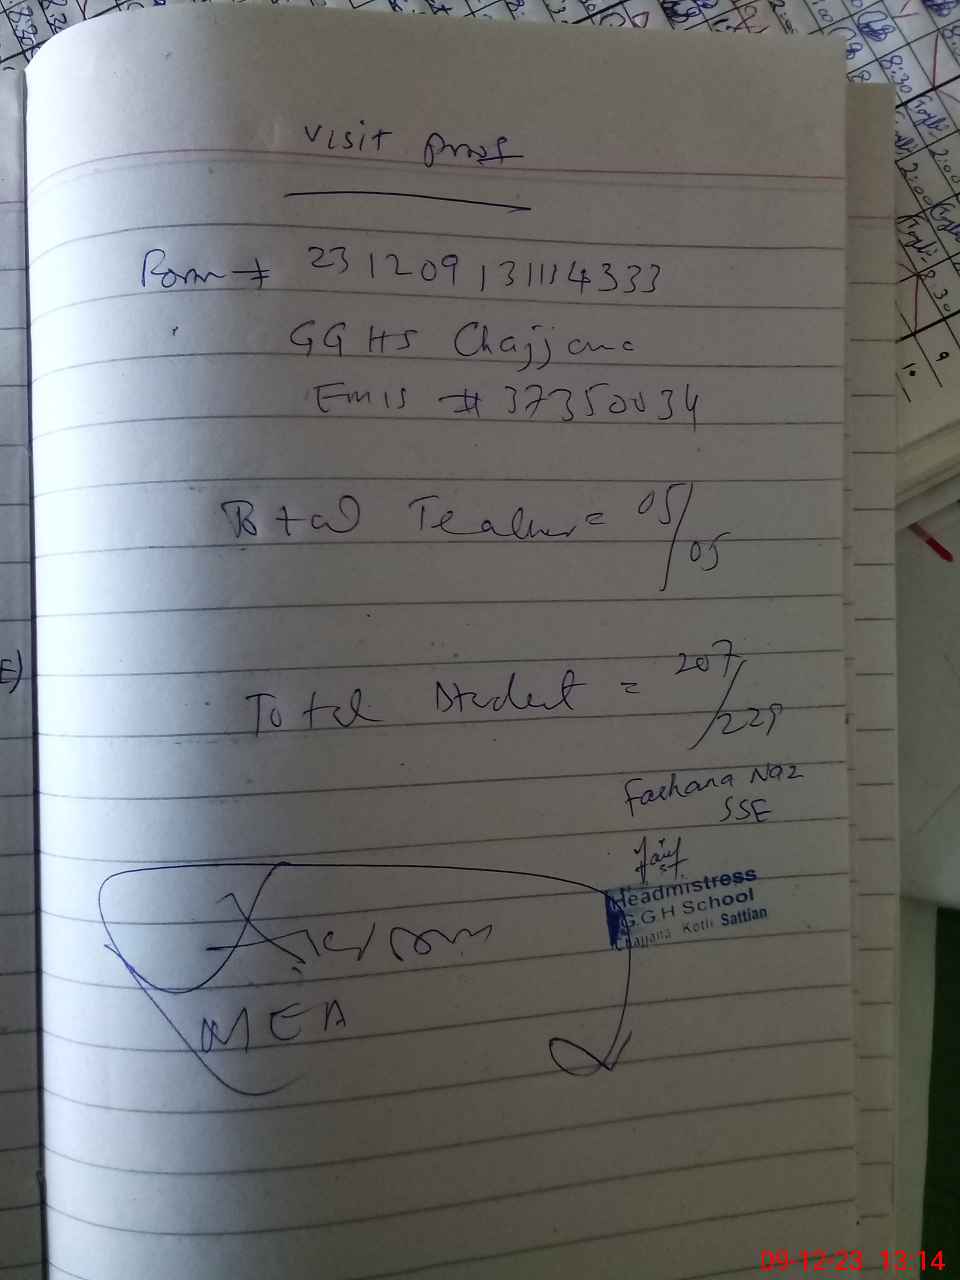 Visit proof
Form # 231209131114333
GGHS Chajjana
Emis # 37350034
Total Teacher = 05/05
Total Student = 207/229
Farhana Naz
SSE
Headmistress
G.G.H School
Chajjana Kotli Sattian
MEA
09-12-23 13:14